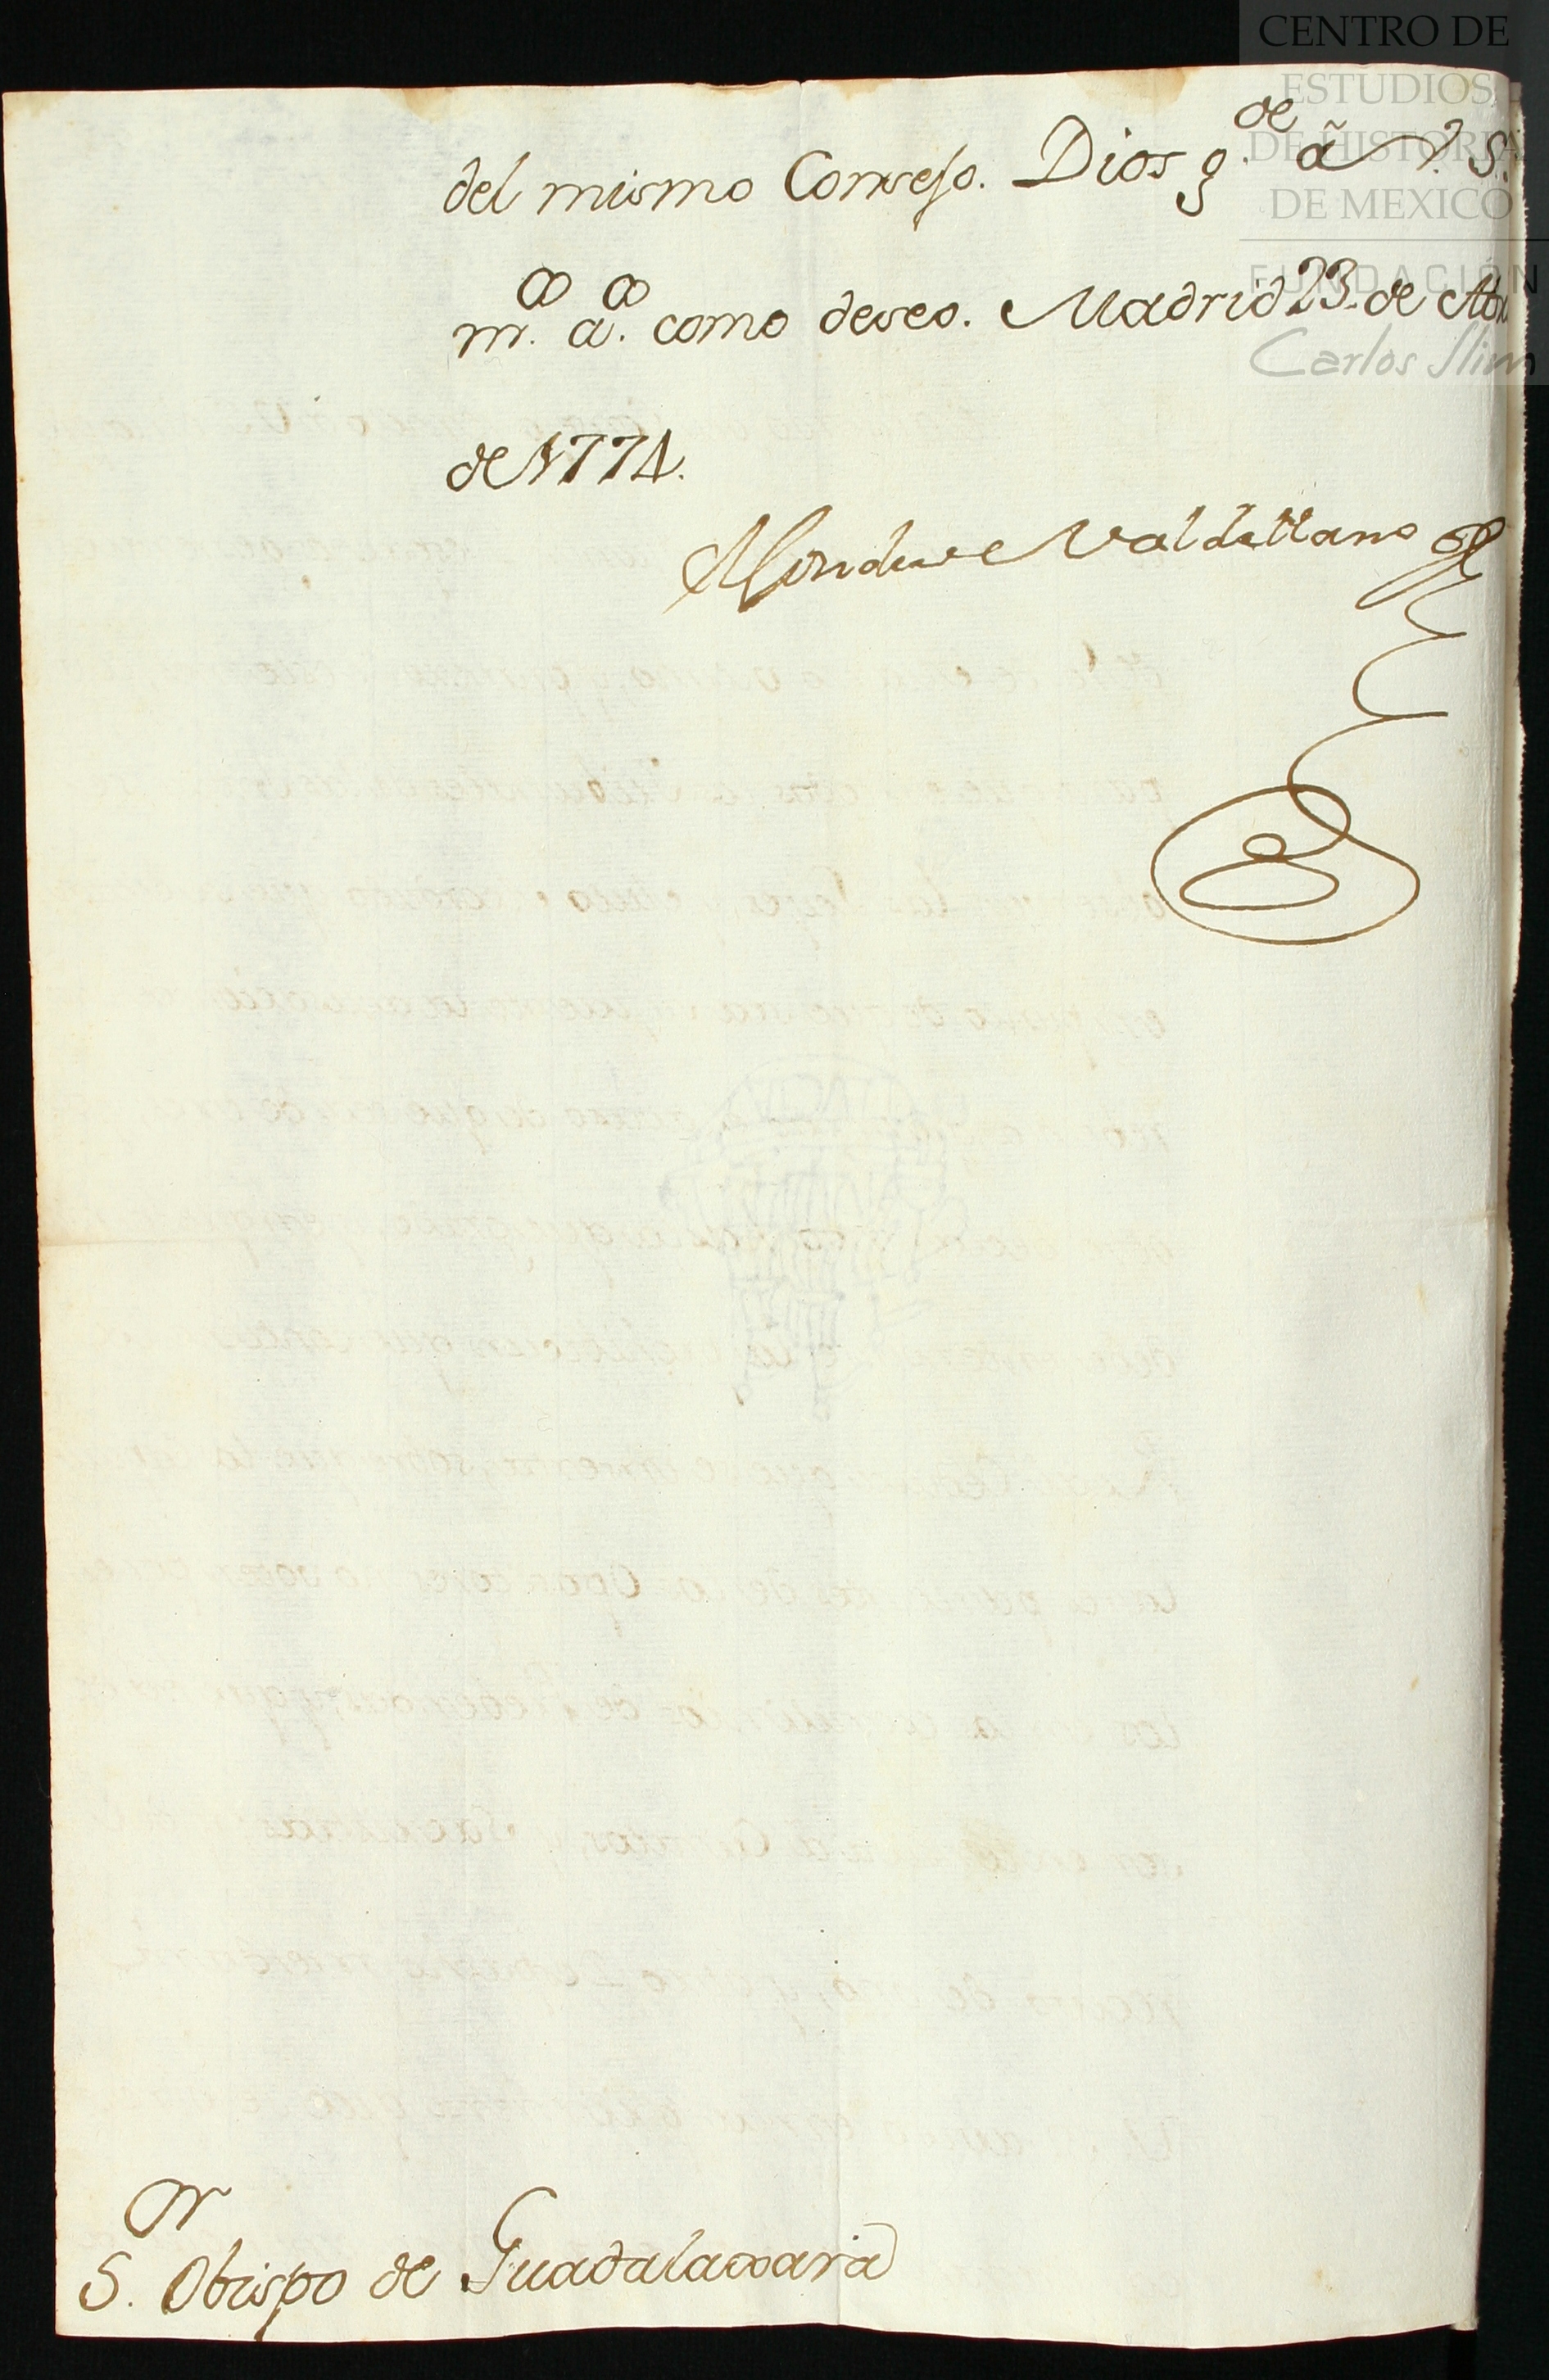 del mismo Consejo. Dios g.de â V. S.
m.s a.s como deseo. Madrid 23. de Ab
de 1774.
El Conde de Valdellano
S.or Obispo de Guadalaxara
CENTRO DE
ESTUDIOS
DE HISTORIA
DE MEXICO
FUNDACIÓN
Carlos Slim